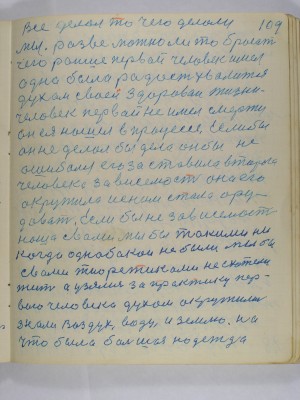 109
Все делал то чего делали
мы. разве можно ли то бросат
чего раньше первай человек имел
одно была радост хвалится
духам своей здоровай жизни.
человек первай не имел смерти
он ея нашел в процессе, Если бы
он не делал бы дела он бы не
ошибался его заставила вторая
человека зависемост она его
окружила и с ним стала
Если бы не зависемост
наша с вами мы бы такими ни
когда однабокаи не были мы бы
с вами теоретиками не схотели
жит а узялися за практику пер-
вого человека духом окружили
знали воздух, воду и землю. на
что была большая надежда